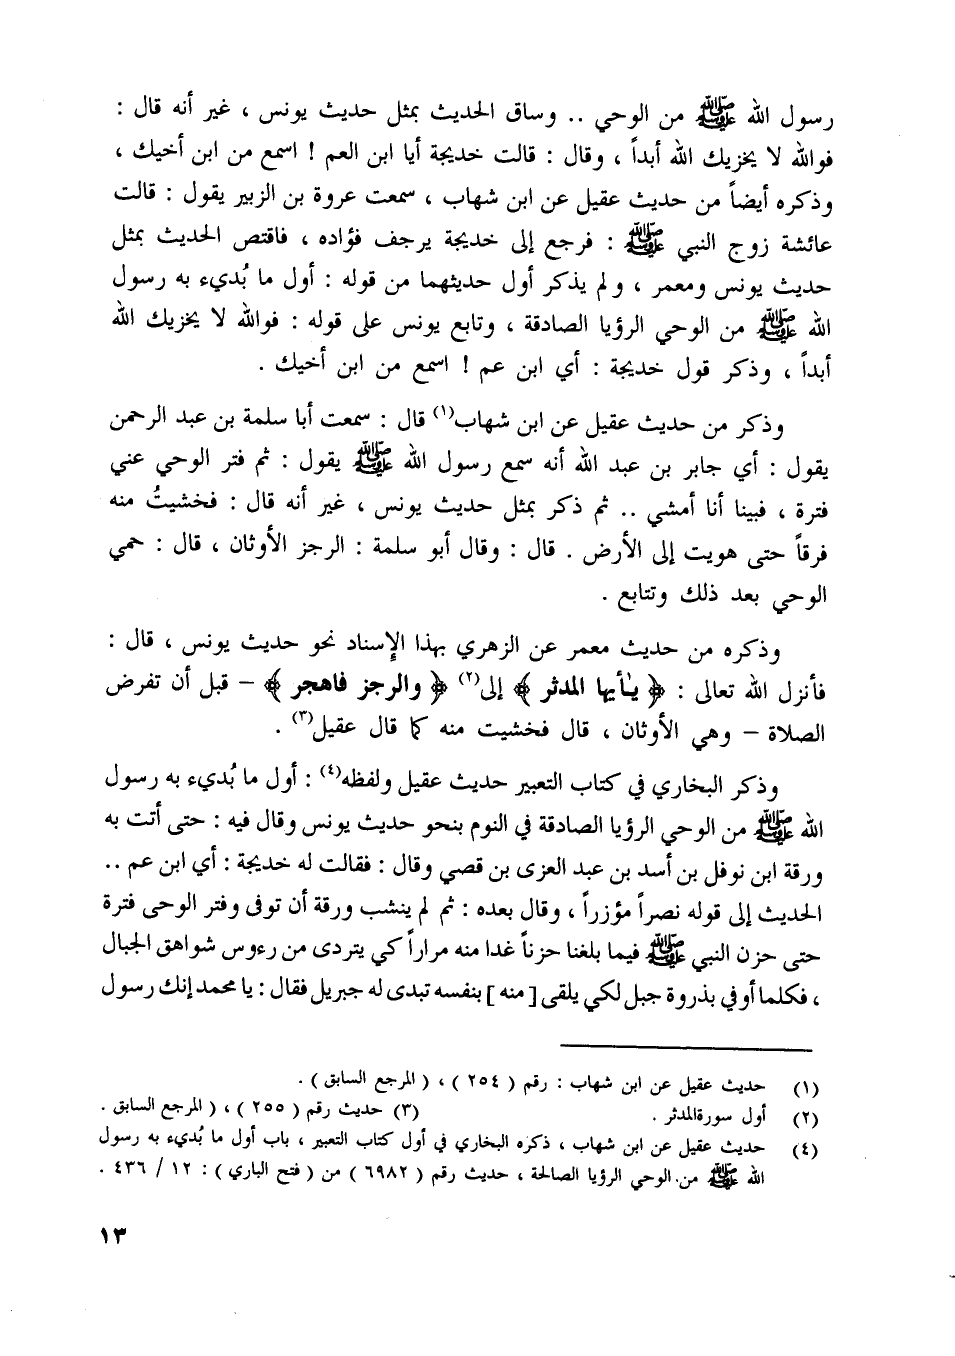 رسول الله ﷺ من الوحي .. وساق الحديث بمثل حديث يونس ، غير أنه قال :
فوالله لا يخزيك الله أبداً ، وقال : قالت خديجة أيا ابن العم ! اسمع من ابن أخيك ،
وذكره أيضاً من حديث عقيل عن ابن شهاب ، سمعت عروة بن الزبير يقول : قالت
عائشة زوج النبي ﷺ : فرجع إلى خديجة يرجف فؤاده ، فاقتص الحديث بمثل
حديث يونس ومعمر ، ولم يذكر أول حديثهما من قوله : أول ما بُديء به رسول
الله ﷺ من الوحي الرؤيا الصادقة ، وتابع يونس على قوله : فوالله لا يخزيك الله
أبداً ، وذكر قول خديجة : أي ابن عم ! اسمع من ابن أخيك .
وذكر من حديث عقيل عن ابن شهاب(١) قال : سمعت أبا سلمة بن عبد الرحمن
يقول : أي جابر بن عبد الله أنه سمع رسول الله ﷺ يقول : ثم فتر الوحي عني
فترة ، فبينا أنا أمشي .. ثم ذكر بمثل حديث يونس ، غير أنه قال : فخشيتُ منه
فرقاً حتى هويت إلى الأرض . قال : وقال أبو سلمة : الرجز الأوثان ، قال : حمي
الوحي بعد ذلك وتتابع .
وذكره من حديث معمر عن الزهري بهذا الإسناد نحو حديث يونس ، قال :
فأنزل الله تعالى : ﴿ يٰأيها المدثر ﴾ إلى(٢) ﴿ والرجز فاهجر ﴾ – قبل أن تفرض
الصلاة – وهي الأوثان ، قال فخشيت منه كما قال عقيل(٣) .
وذكر البخاري في كتاب التعبير حديث عقيل ولفظه(٤) : أول ما بُديء به رسول
الله ﷺ من الوحي الرؤيا الصادقة في النوم بنحو حديث يونس وقال فيه : حتى أتت به
ورقة ابن نوفل بن أسد بن عبد العزى بن قصي وقال : فقالت له خديجة : أي ابن عم ..
الحديث إلى قوله نصراً مؤزراً ، وقال بعده : ثم لم ينشب ورقة أن توفى وفتر الوحى فترة
حتى حزن النبي ﷺ فيما بلغنا حزناً غدا منه مراراً كي يتردى من رءوس شواهق الجبال
، فكلما أوفي بذروة جبل لكي يلقى [ منه ] بنفسه تبدى له جبريل فقال : يا محمد إنك رسول
(١) حديث عقيل عن ابن شهاب : رقم ( ٢٥٤ ) ، ( المرجع السابق ) .
(٢) أول سورة المدثر . (٣) حديث رقم ( ٢٥٥ ) ، ( المرجع السابق .
(٤) حديث عقيل عن ابن شهاب ، ذكره البخاري في أول كتاب التعبير ، باب أول ما بُديء به رسول
الله ﷺ من الوحي الرؤيا الصالحة ، حديث رقم ( ٦٩٨٢ ) من ( فتح الباري ) : ١٢ / ٤٣٦ .
١٣